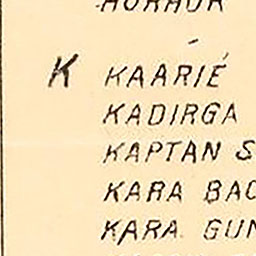 K KAARIÉ
KADIRGA
KAPTAN S
KARA BAC
KARA GUN